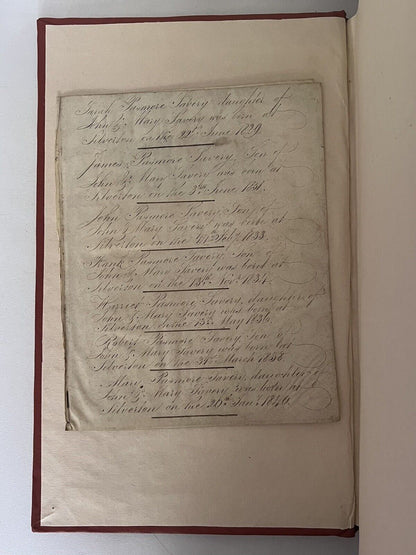 Sarah Pasmore Savery daughter of
John & Mary Savery was born at
Silverton on the 22nd June 1829
James Pasmore Savery, Son of
John & Mary Savery was born at
Silverton on the 3rd June 1831.
John Pasmore Savery, Son of
John & Mary Savery was born at
Silverton on the Feby. 1833.
Frank Pasmore Savery, Son of
John & Mary Savery was born at
Silverton on the 13th Novr. 1834.
Harriet Pasmore Savery, daughter of
John & Mary Savery was born at
Silverton on the 13th May 1836
Robert Pasmore Savery Son of
John & Mary Savery was born at
Silverton on the 31st March 1838
Mary Pasmore Savery, daughter of
John & Mary Savery was born at
Silverton on the Jany. 1840.